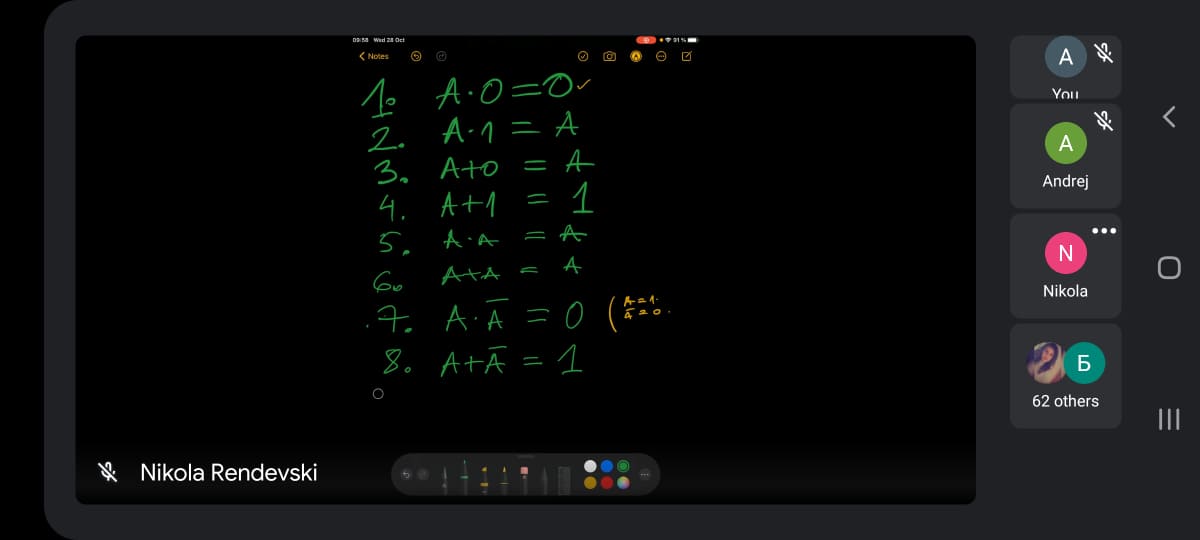 09:58 Wed 28 Oct
91%
Notes
1. A·0=0✓
2. A·1 = A
3. A+0 = A
4. A+1 = 1
5. A·A = A
6. A+A = A
7. A·A̅ = 0 ( A=1.
A̅=0.
8. A+A̅ = 1
Nikola Rendevski
A
You
A
Andrej
N
Nikola
Б
62 others